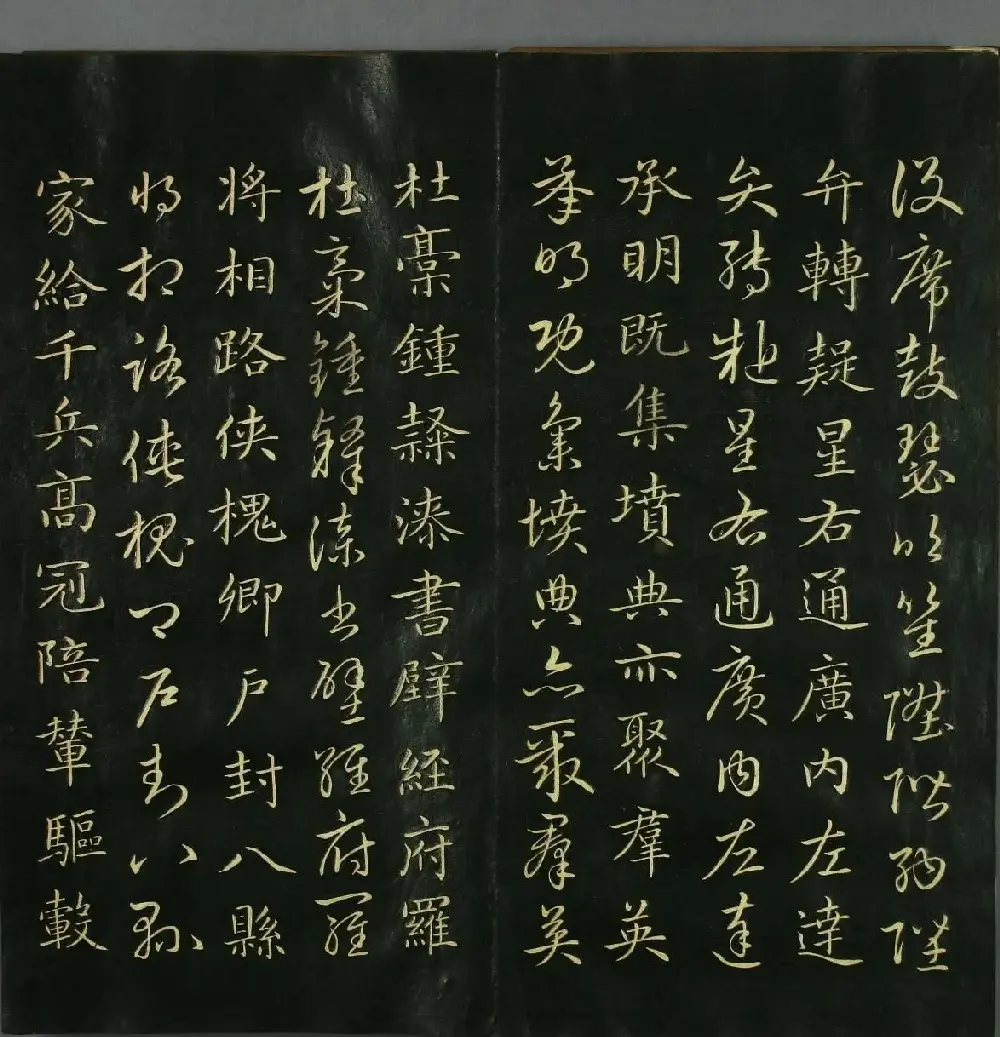 設席鼓瑟吹笙陞階納陛
弁轉疑星右通廣內左達
弁轉疑星右通廣內左達
承明既集墳典亦聚羣英
承明既集墳典亦聚羣英
杜稾鍾隸漆書壁經府羅
杜稾鍾隸漆書壁經府羅
將相路俠槐卿戶封八縣
將相路俠槐卿戶封八縣
家給千兵高冠陪輦驅轂